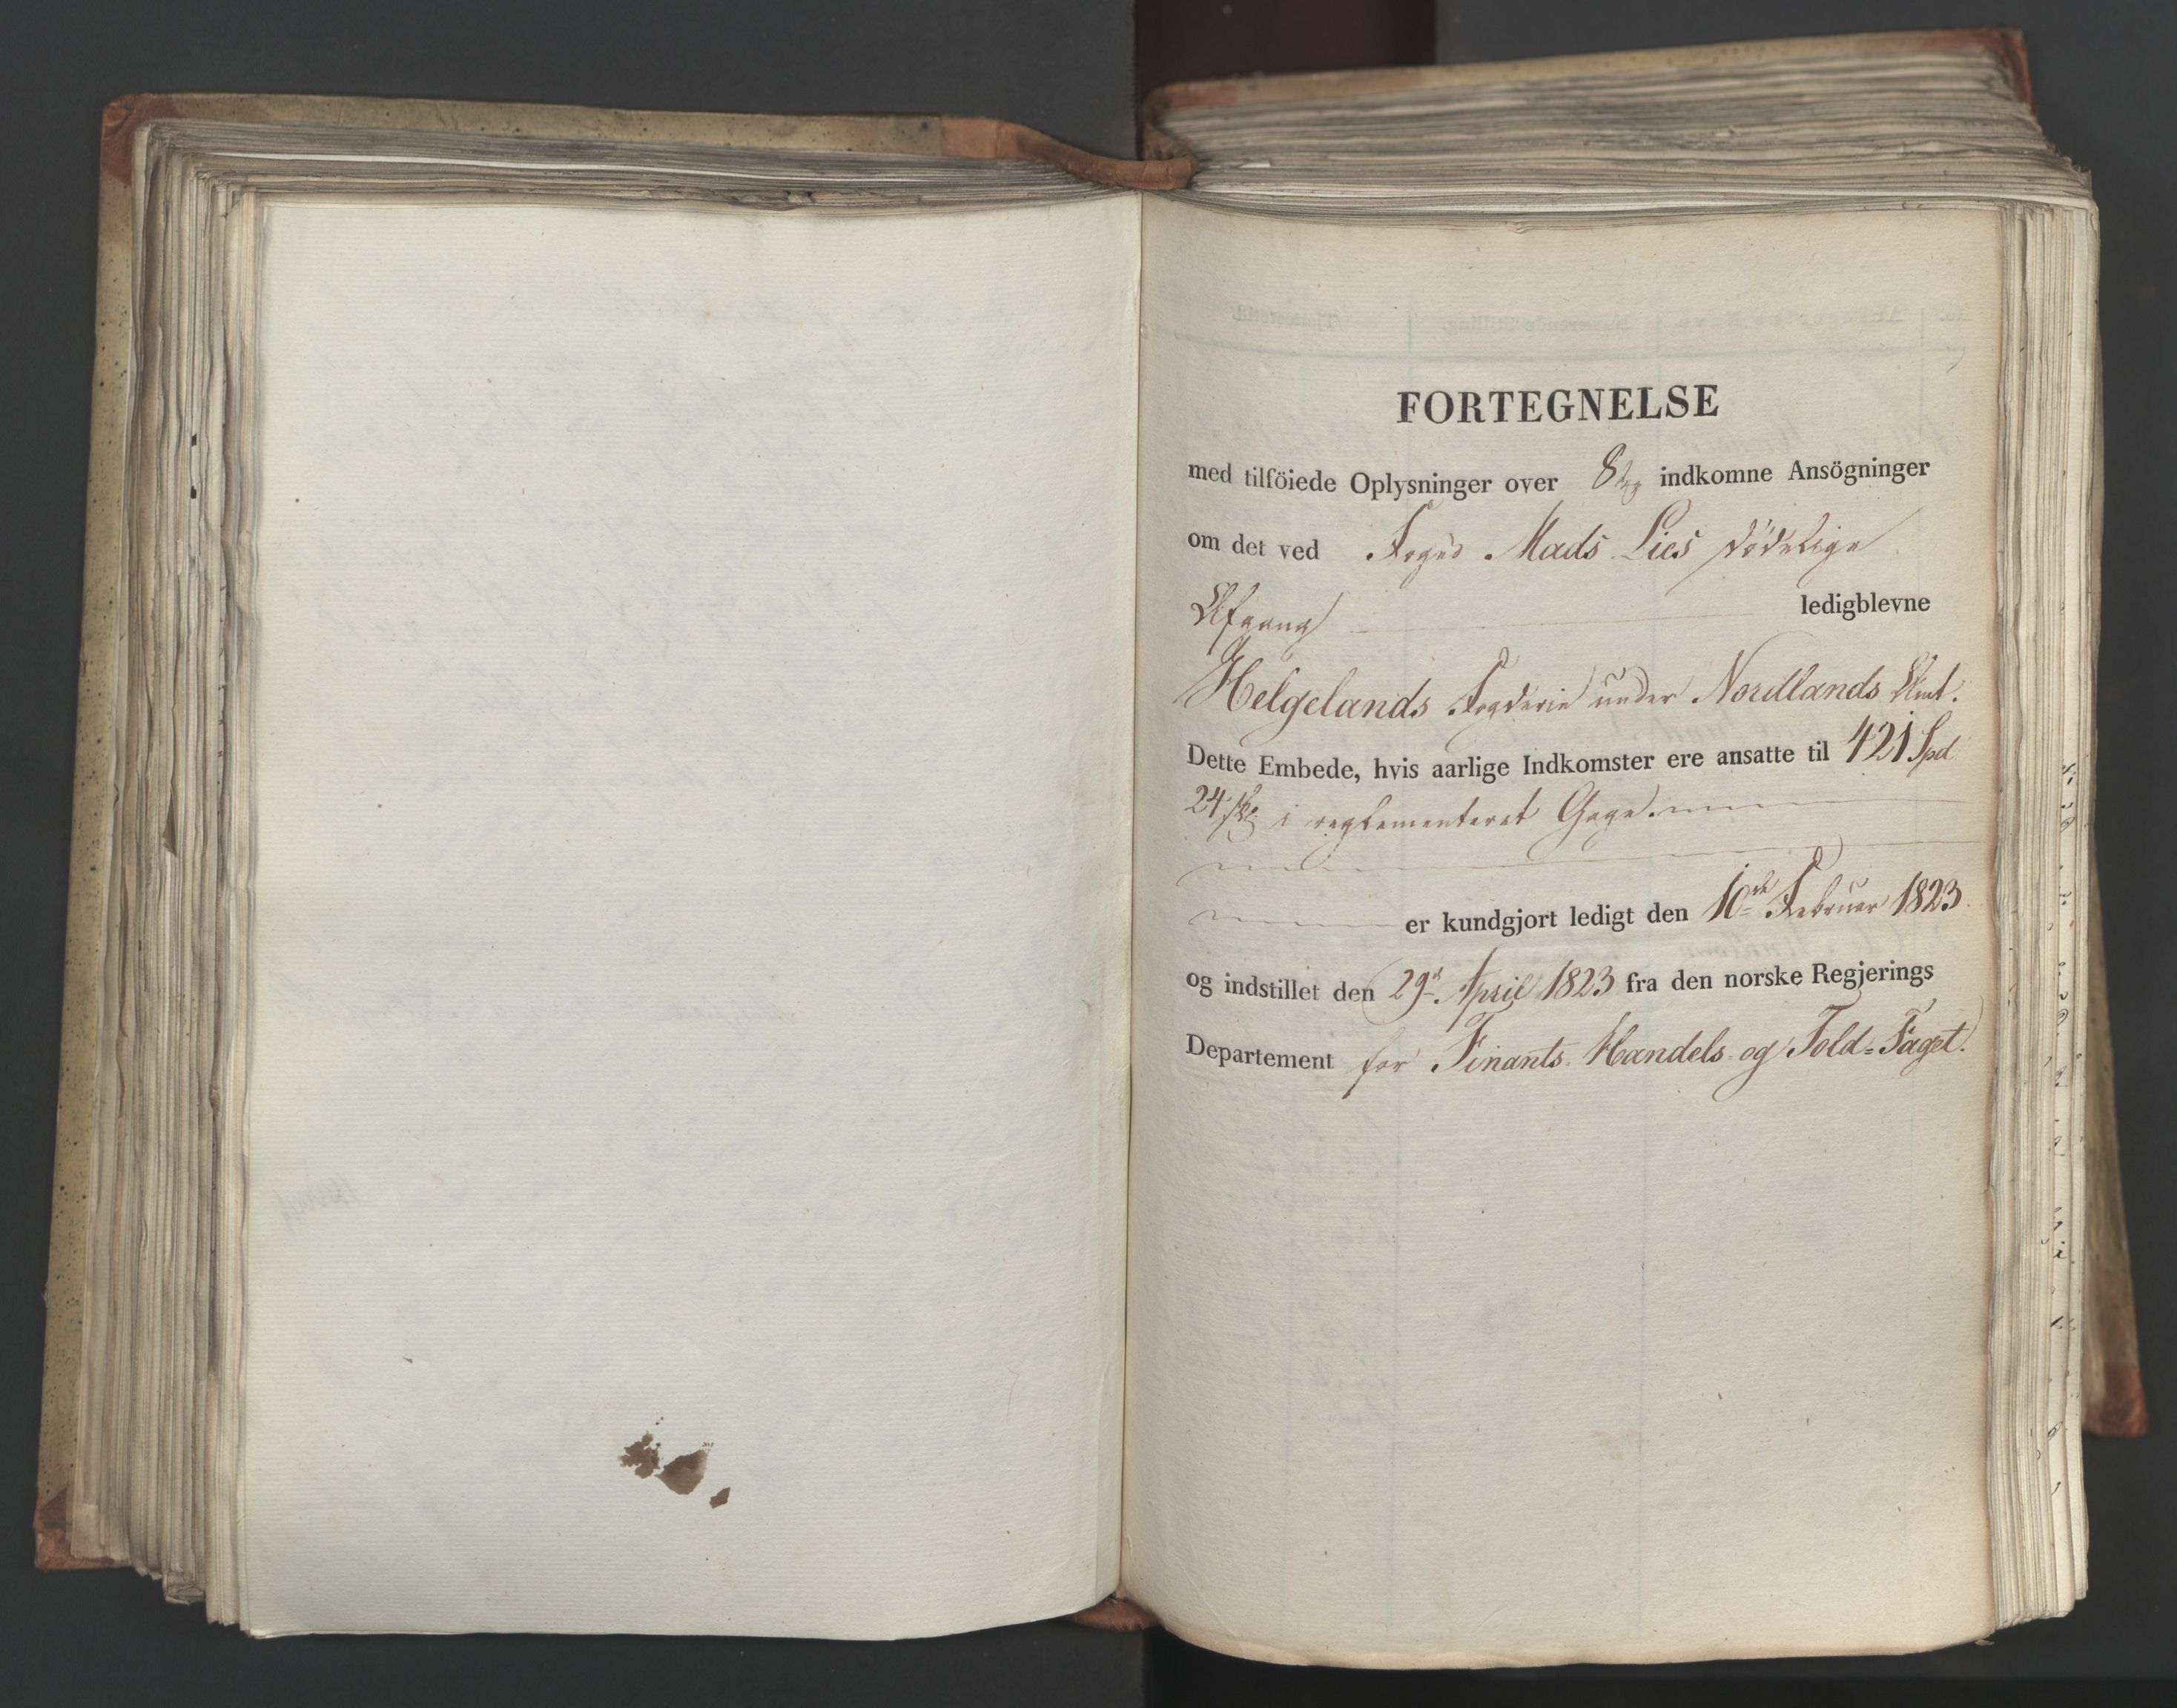 FORTEGNELSE
med tilföiede Oplysninger over 8te indkomne Ansögninger
om det ved Foged Mads Lies dödelige
Afgang ledigblevne
Helgelands Fogderie under Nordlands Amt.
Dette Embede, hvis aarlige Indkomster ere ansatte til 421 Spd
24 ſk: i reglementeret Gage.
er kundgjort ledigt den 10de Februar 1823
og indstillet den 29d. April 1823 fra den norske Regjerings
Departement for Finants- Handels- og Told-Faget.